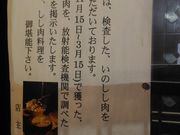 は、検査した、いのしし肉を
ただいております。
11月15日~3月15日)で獲った、
肉を、放射能検査機関で調べた
を掲示いたします。
、しし肉料理を
御堪能下さい。
店主